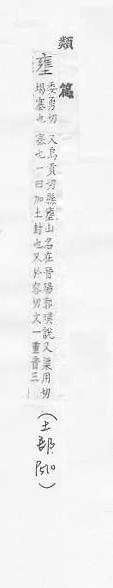 類篇
壅
委勇切
塞也
又烏貢切縣壅山名在晉陽郭璞說又渠用切
塞也一曰加土封也又於容切文一重音三
(土部, P510)